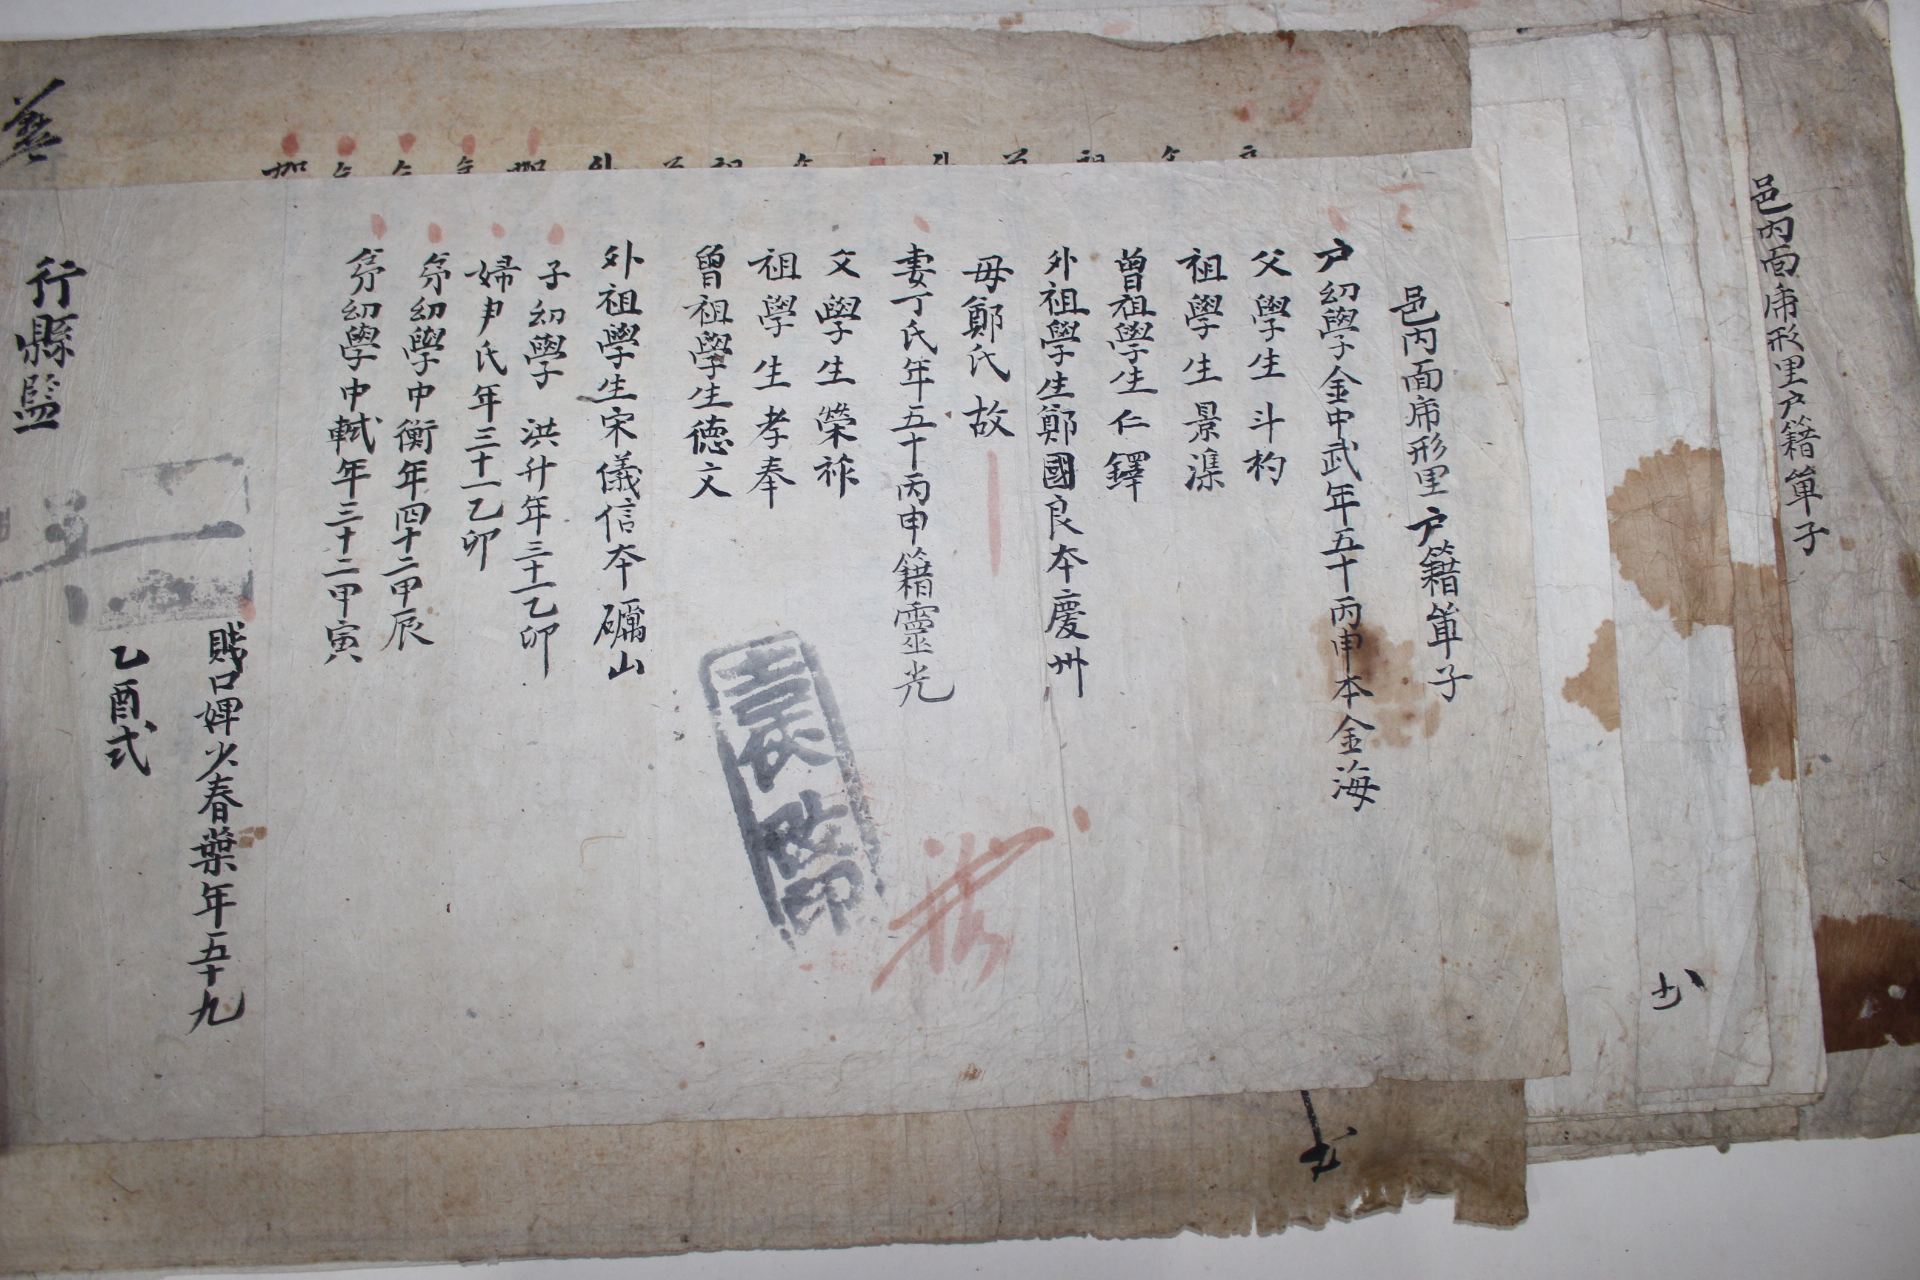 邑內面席形里戶籍單子
邑內面席形里戶籍單子
戶幼學金中武年五十丙申本金海
父學生斗杓
祖學生景漢
曾祖學生仁鐸
外祖學生鄭國良本慶州
母鄭氏故
妻丁氏年五十丙申籍靈光
父學生榮祚
祖學生孝奉
曾祖學生德文
外祖學生宋儀信本礪山
子幼學洪升年三十一乙卯
婦尹氏年三十一乙卯
弟幼學中衡年四十二甲辰
弟幼學中軾年三十二甲寅
賤口婢少春葉年五十九
乙酉式
行縣監